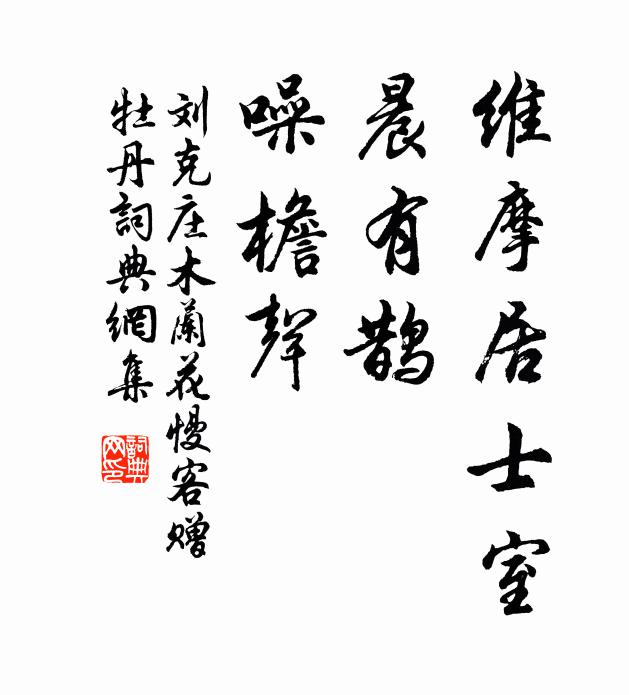 維摩居士室
晨有鹊
噪檐聲
刘克庄木蘭花慢客赠
牡丹詞典網集
詞典
网印